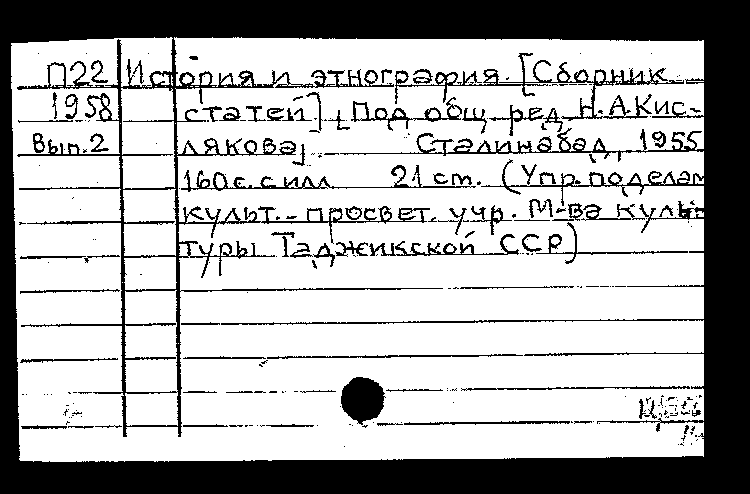 П22 История и этнография. [Сборник
1958 статей] [Под общ. ред. Н.А.Кис-
Вып.2 лякова]. Сталинабад, 1955
160с. с илл 21 ст. (Упр. по делам
культ.-просвет. учр. М-ва куль-
туры Таджикской ССР)